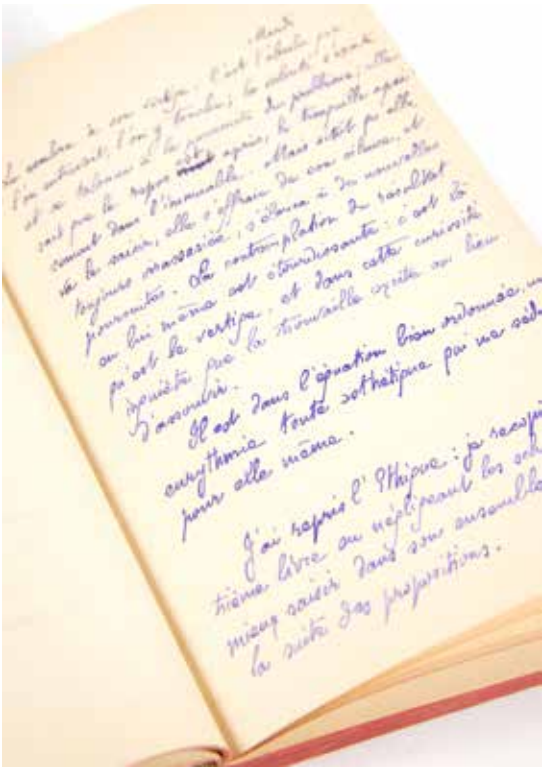 Mardi
Le nombre a son vertige. C'est l'absolu que
l'on entrevoit, l'on y touche; la volonté s'exalte
et se à la poursuite du problème; elle
sait que le repos est après, le tranquille
dans l'immuable. Mais sitôt qu'elle
va le saisir, elle s'effraie de son silence, et
toujours s'élance à de nouvelles
poursuites. La contemplation du résultat
en lui même est étourdissante: c'est là
qu'est le vertige, et dans cette curiosité
inquiète que la trouvaille excite au lieu
d'assouvir.
Il est dans l'équation bien ordonnée, un
eurythmie toute esthétique qui me sédu
pour elle même.
J'ai repris l'Ethique: je recopi
trième livre en négligeant les sch
mieux saisir dans son ensemble
la suite des propositions.